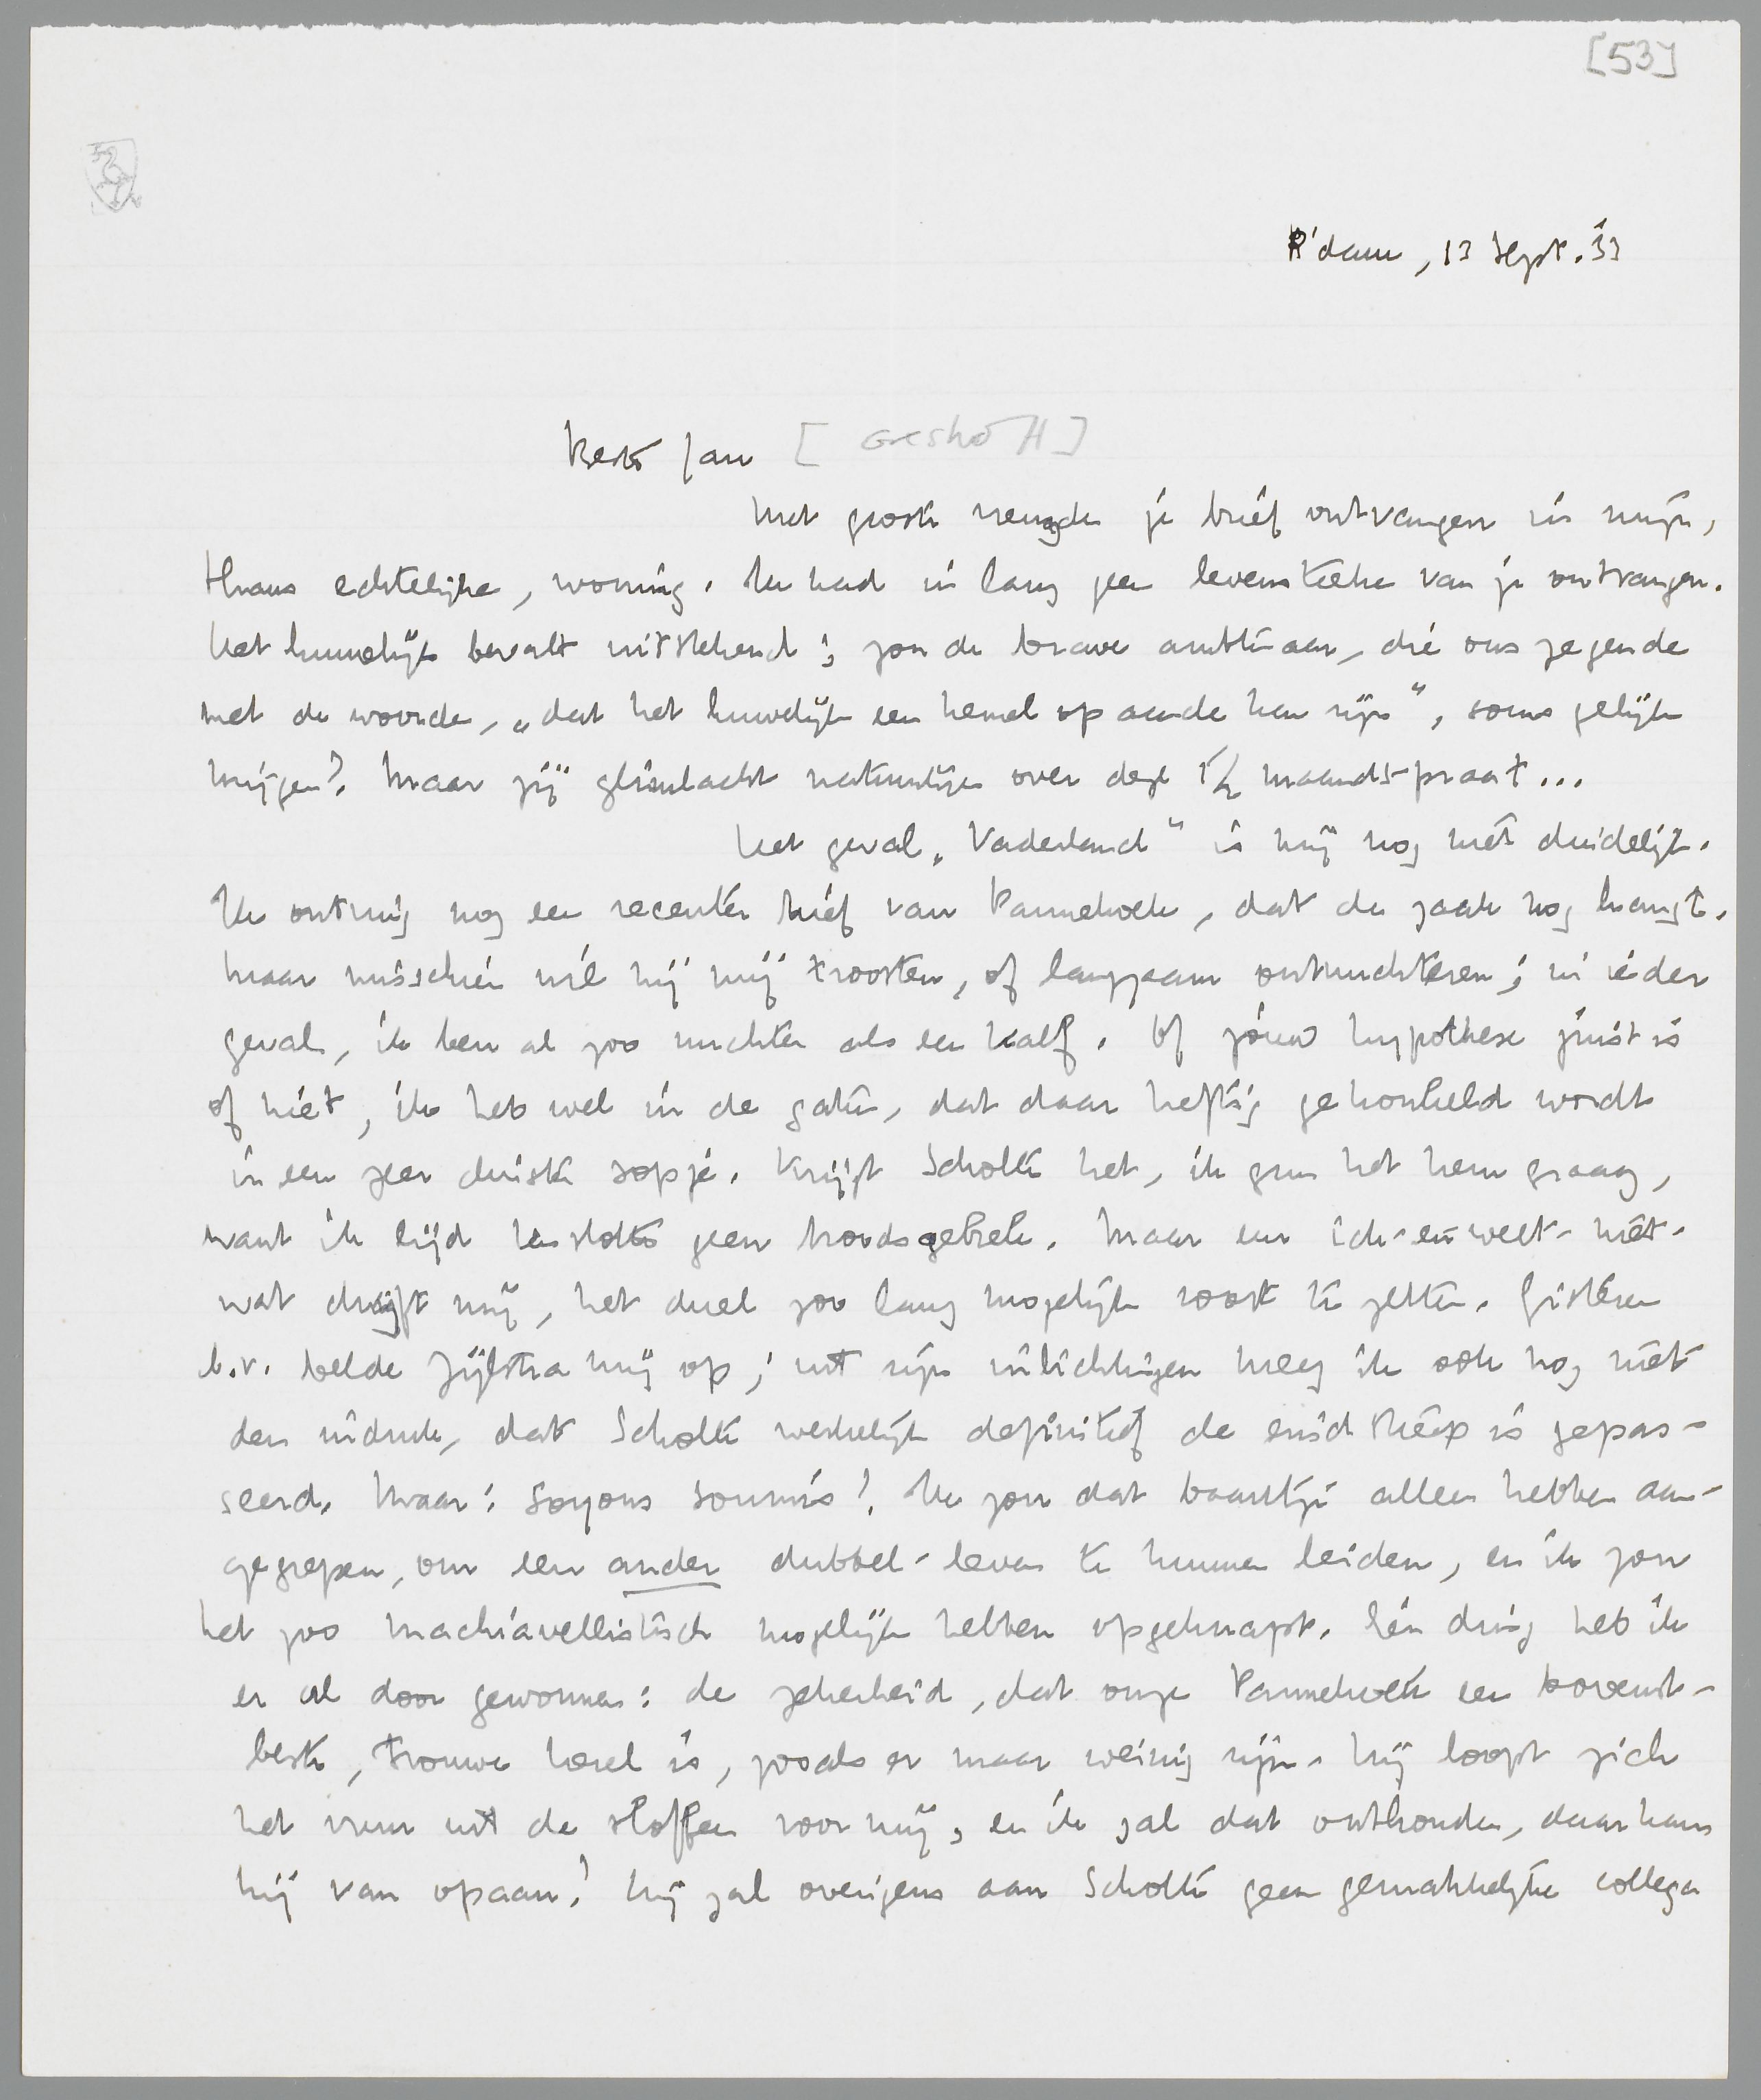 [53]
R'dam, 13 Sept. '33
Beste Jan [Greshoff]
Met groote vreugde je brief ontvangen in mijn,
thans echtelijke, woning. Ik had in lang geen levensteeken van je ontvangen.
Het huwelijk bevalt uitstekend; zou de brave ambtenaar, die ons zegende
met de woorden, „dat het huwelijk een hemel op aarde kan zijn", soms gelijk
krijgen? Maar jij glimlacht natuurlijk over deze 1½ maands-praat...
Het geval „Vaderland" is mij nog niet duidelijk.
Ik ontving nog een recenter brief van Pannekoek, dat de zaak nog hangt.
Maar misschien wil hij mij troosten, of langzaam ontnuchteren; in ieder
geval, ik ben al zoo nuchter als een kalf. Of jouw hypothese juist is
of niet, ik heb wel in de gaten, dat daar heftig gekonkeld wordt
in een zeer duister sopje. Krijgt Scholte het, ik gun het hem graag,
want ik lijd ten slotte geen broodsgebrek. Maar een ich-weet-niet-
wat dwingt mij, het duel zoo lang mogelijk voort te zetten. Gisteren
b.v. belde Zijlstra mij op; uit zijn inlichtingen kreeg ik ook nog niet
den indruk, dat Scholte werkelijk definitief de eindstreep is gepas-
seerd. Maar: soyons soumis! Ik zou dat baantje alleen hebben aan-
gegrepen, om een ander dubbel-leven te kunnen leiden, en ik zou
het zoo machiavellistisch mogelijk hebben opgeknapt. Eén ding heb ik
er al door gewonnen: de zekerheid, dat onze Pannekoek een bovenst-
beste, trouwe kerel is, zooals er maar weinig zijn. Hij loopt zich
het vuur uit de sloffen voor mij, en ik zal dat onthouden, daar kan
hij van opaan! Hij zal overigens aan Scholte geen gemakkelijke collega